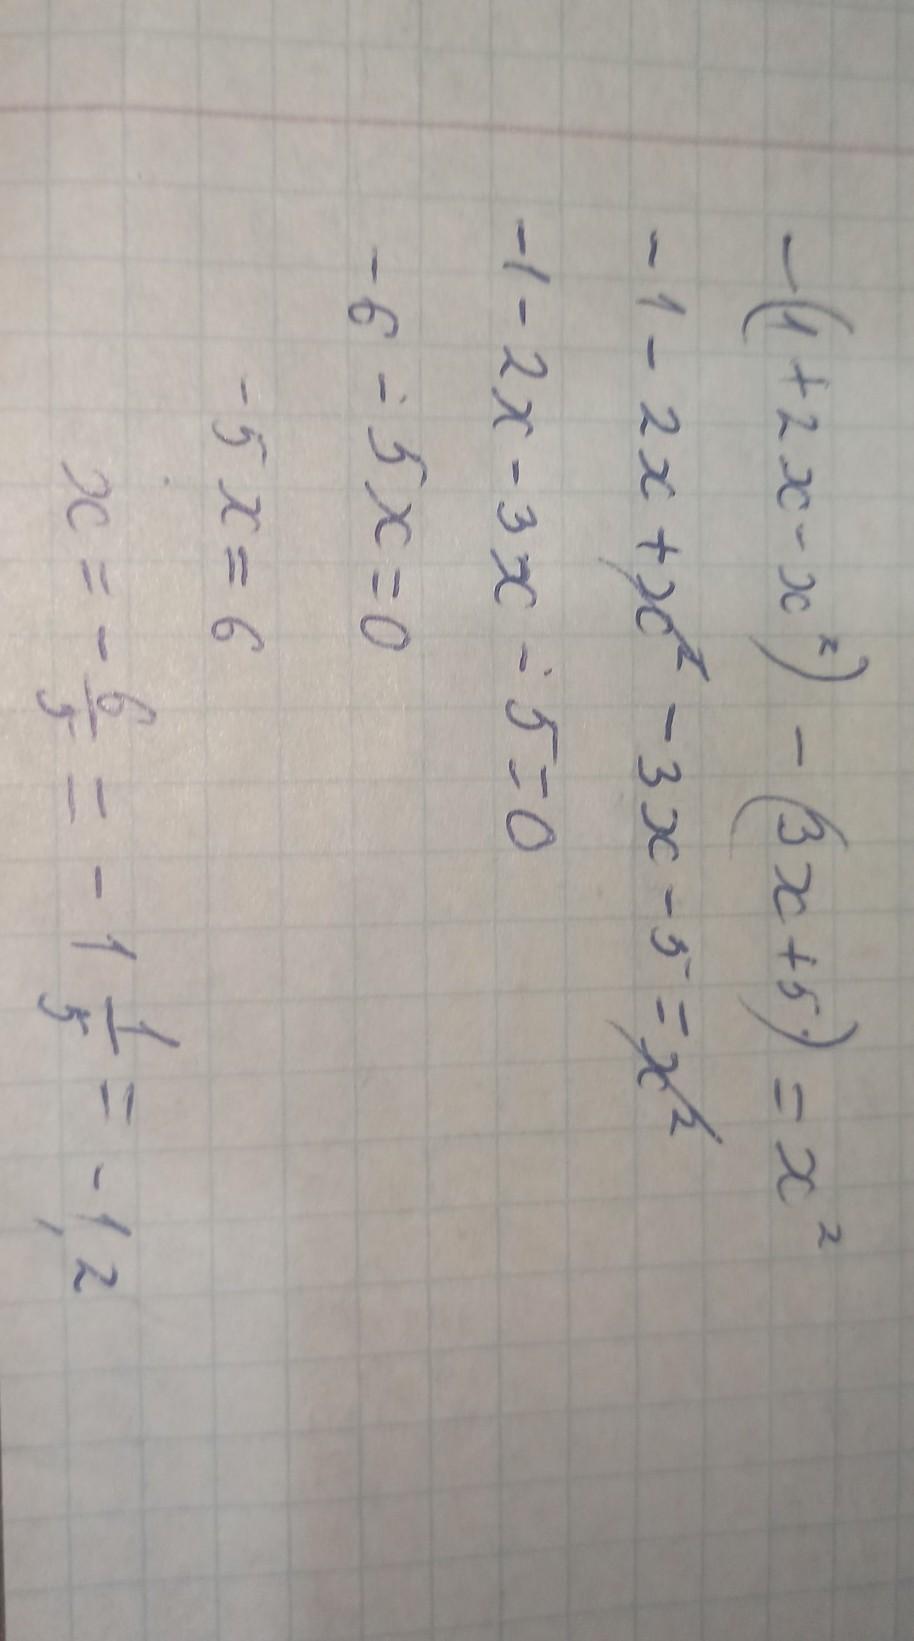 -(1+2x-x²)-(3x+5)=x²
-1-2x+x²-3x-5=x²
-1-2x-3x-5=0
-6-5x=0
-5x=6
x=-6/5=-1 1/5=-1,2